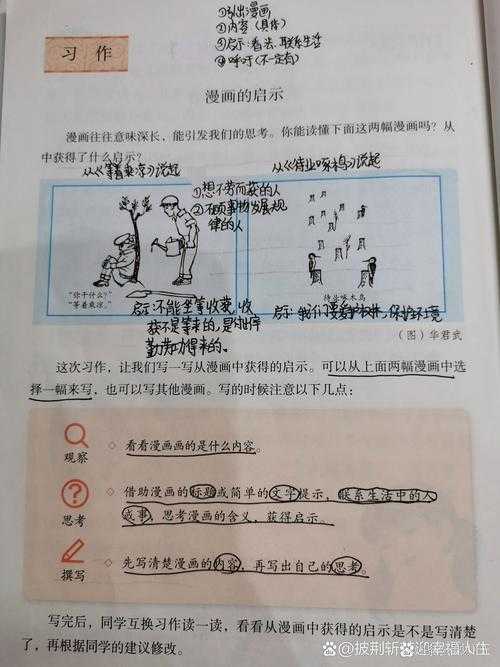 ①引出漫画
②内容（具体）
③启示：看法、联系生活
④呼吁（不一定有）
习 作
漫画的启示
漫画往往意味深长，能引发我们的思考。你能读懂下面这两幅漫画吗？从
中获得了什么启示？
从《等着乘凉》说起
从《待业啄木鸟》说起
①想不劳而获的人
②不顾事物发展规
律的人
“你干什么？”
“等着乘凉。”
待业啄木鸟
启示：不能坐等收获，收
获不是等来的，是付出
勤劳功得来的。
启示：我们要爱护树林，保护环境
（图）华君武
这次习作，让我们写一写从漫画中获得的启示。可以从上面两幅漫画中选
择一幅来写，也可以写其他漫画。写的时候注意以下几点：
观察
看看漫画画的是什么内容。
思考
借助漫画的标题或简单的文字提示，联系生活中的人
或事，思考漫画的含义，获得启示。
撰写
先写清楚漫画的内容，再写出自己的思考。
写完后，同学互换习作读一读，看看从漫画中获得的启示是不是写清楚
了，再根据同学的建议修改。